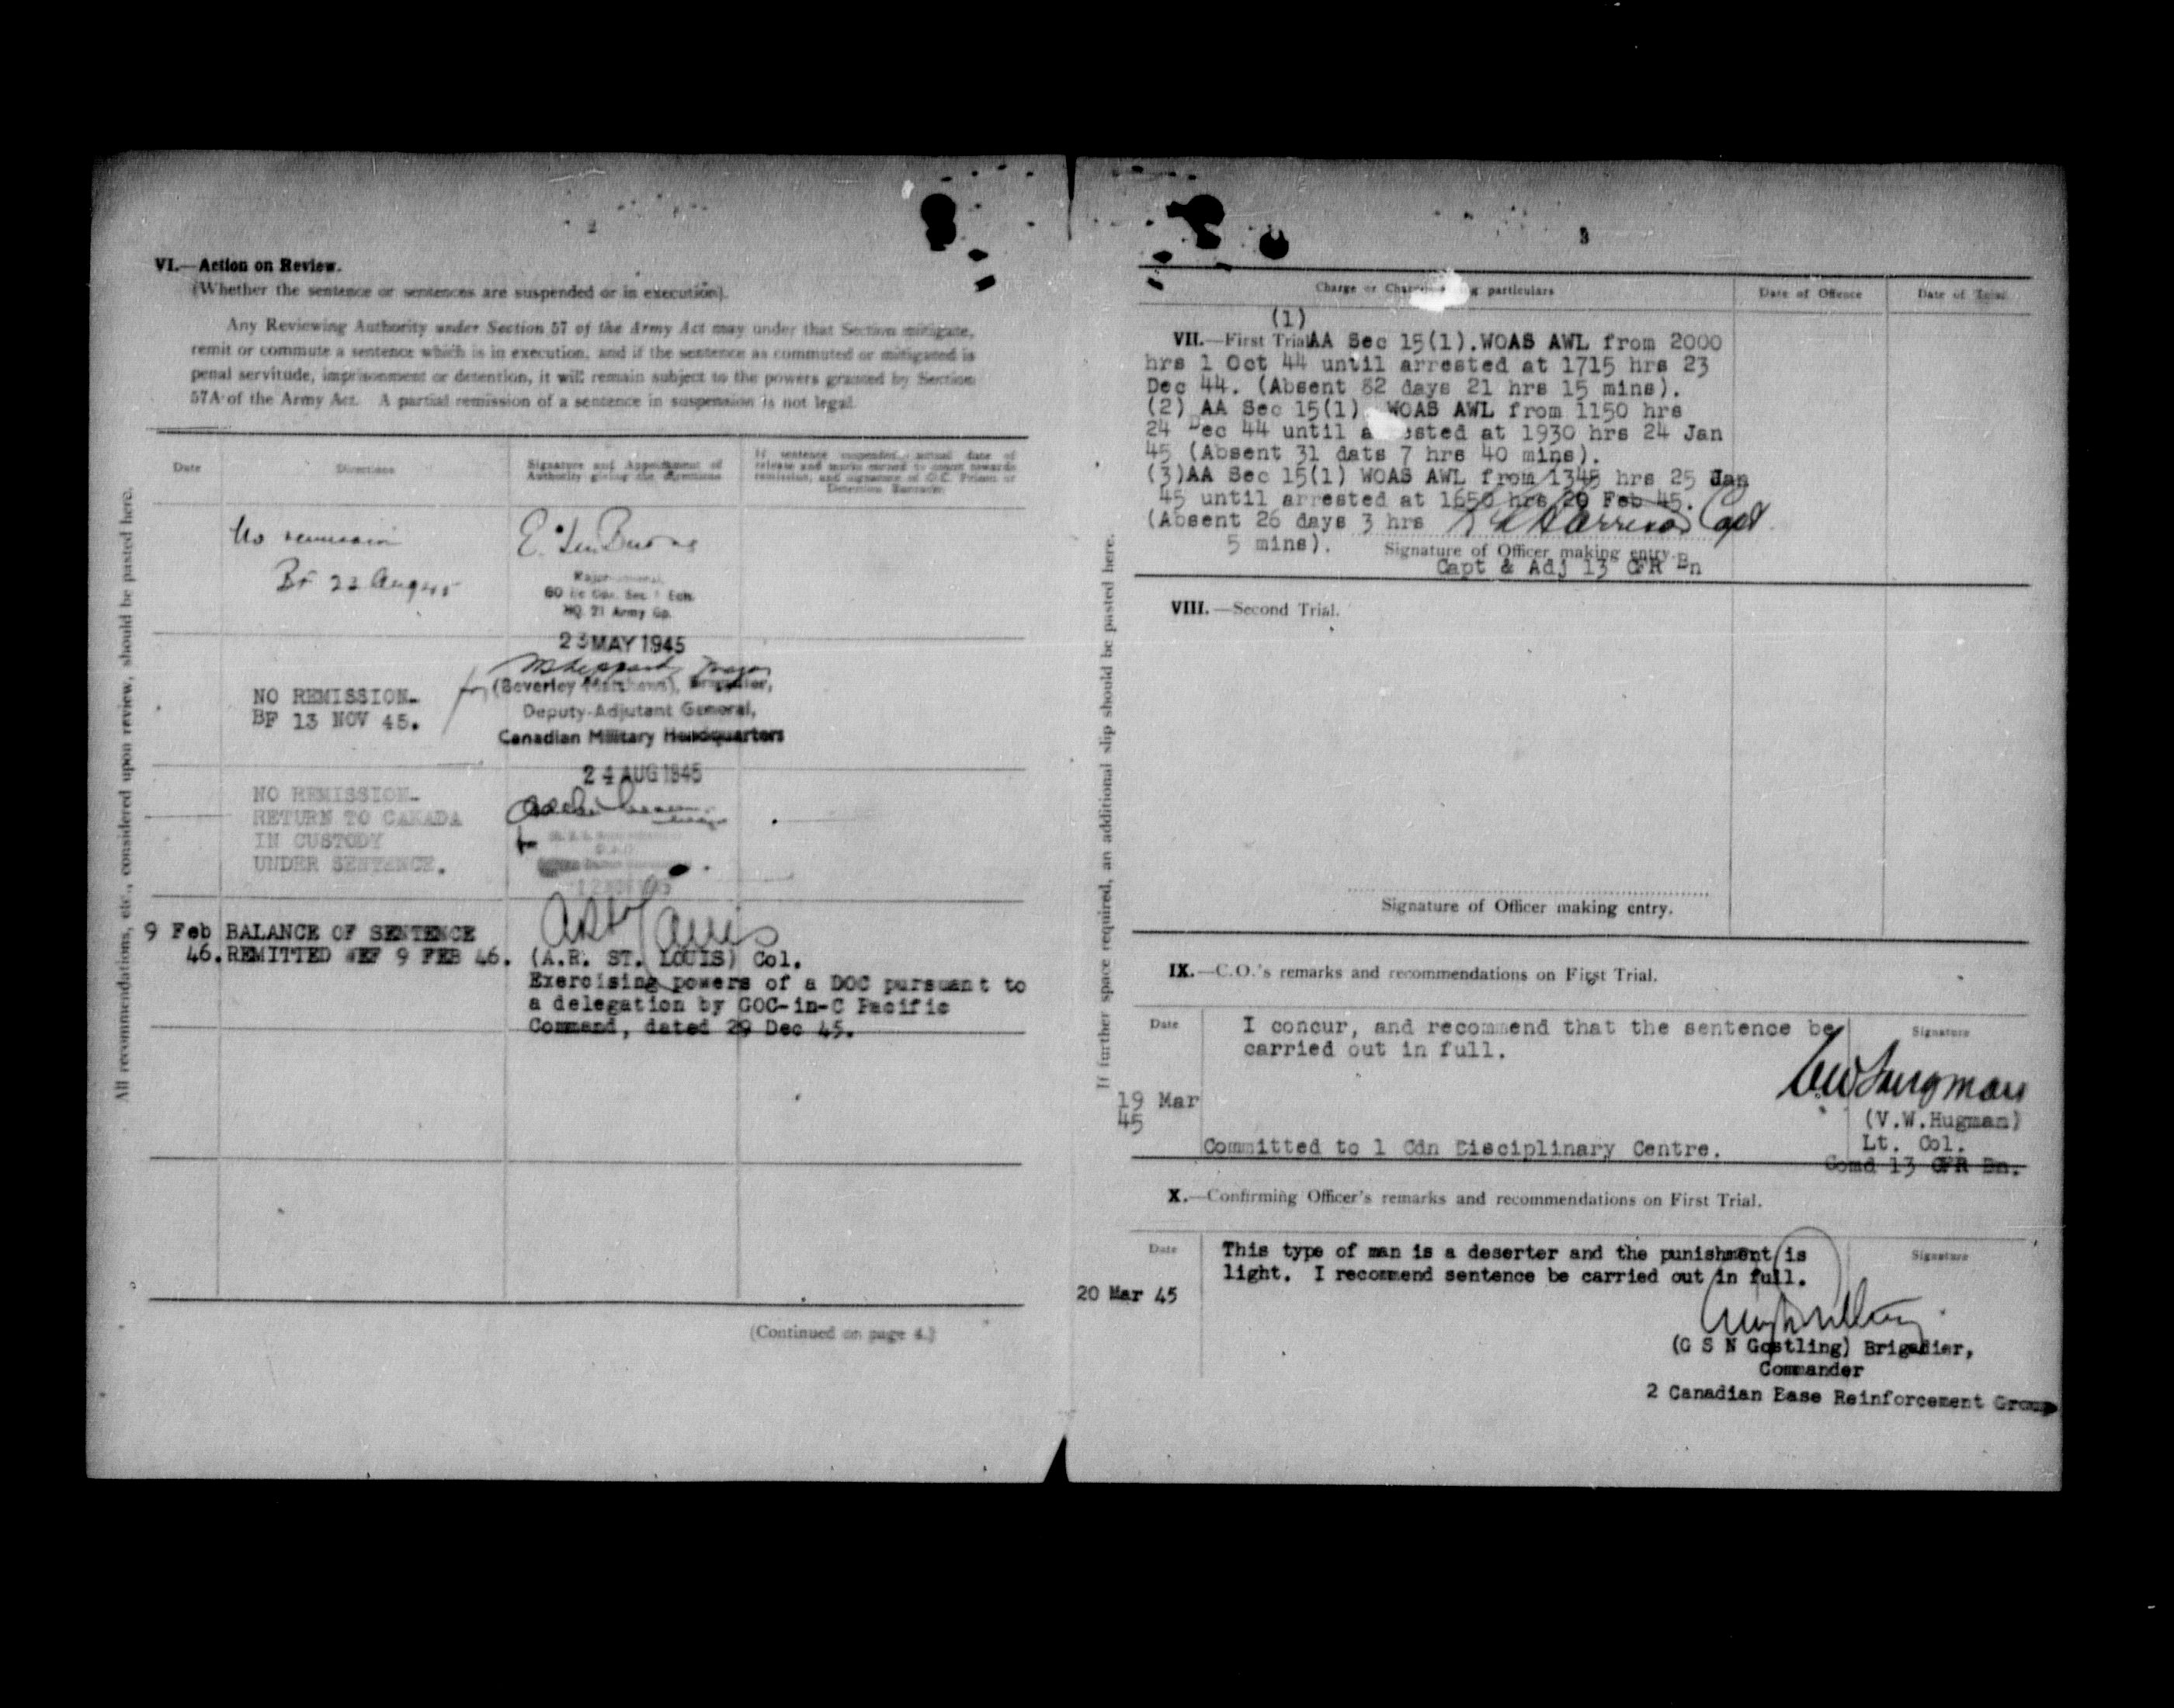 2
VI.—Action on Review.
(Whether the sentence or sentences are suspended or in execution).
Any Reviewing Authority under Section 57 of the Army Act may under that Section mitigate,
remit or commute a sentence which is in execution, and if the sentence as commuted or mitigated is
penal servitude, imprisonment or detention, it will remain subject to the powers granted by Section
57A of the Army Act. A partial remission of a sentence in suspension is not legal.
Date
Directions
Signature and Appointment of
Authority giving the directions
If sentence suspended, actual date of
release and marks earned to count towards
remission, and signature of O.C. Prison or
Detention Barracks
No remission
BF 23 Aug 45
Major-General,
HQ. 21 Army Gp.
23 MAY 1945
NO REMISSION-
BF 13 NOV 45.
for
Major
(Beverley Matthews), Brigadier,
Deputy-Adjutant General,
Canadian Military Headquarters
24 AUG 1945
NO REMISSION-
RETURN TO CANADA
IN CUSTODY
UNDER SENTENCE.
9 Feb BALANCE OF SENTENCE
46. REMITTED WEF 9 FEB 46.
(A.R. ST. LOUIS) Col.
Exercising powers of a DOC pursuant to
a delegation by GOC-in-C Pacific
Command, dated 29 Dec 45.
(Continued on page 4.)
All recommendations, etc., considered upon review, should be pasted here.
3
Charge or particulars
Date of Offence
Date of Trial
(1)
VII.—First Trial AA Sec 15(1).WOAS AWL from 2000
hrs 1 Oct 44 until arrested at 1715 hrs 23
Dec 44. (Absent 82 days 21 hrs 15 mins).
(2) AA Sec 15(1) WOAS AWL from 1150 hrs
24 Dec 44 until a ested at 1930 hrs 24 Jan
45 (Absent 31 dats 7 hrs 40 mins).
(3)AA Sec 15(1) WOAS AWL from 1345 hrs 25 Jan
45 until arrested at 1650 hrs 20 Feb 45.
(Absent 26 days 3 hrs Capt
5 mins).
Signature of Officer making entry.
Capt & Adj 13 CFR Bn
VIII.—Second Trial.
Signature of Officer making entry.
IX.—C.O.'s remarks and recommendations on First Trial.
Date
I concur, and recommend that the sentence be
carried out in full.
Signature
19 Mar
45
(V.W.Hugman)
Lt. Col.
Comd 13 CFR Bn.
Committed to 1 Cdn Disciplinary Centre.
X.—Confirming Officer's remarks and recommendations on First Trial.
Date
This type of man is a deserter and the punishment is
light. I recommend sentence be carried out in full.
Signature
20 Mar 45
(G S N Gostling) Brigadier,
Commander
2 Canadian Base Reinforcement Group
If further space required, an additional slip should be pasted here.